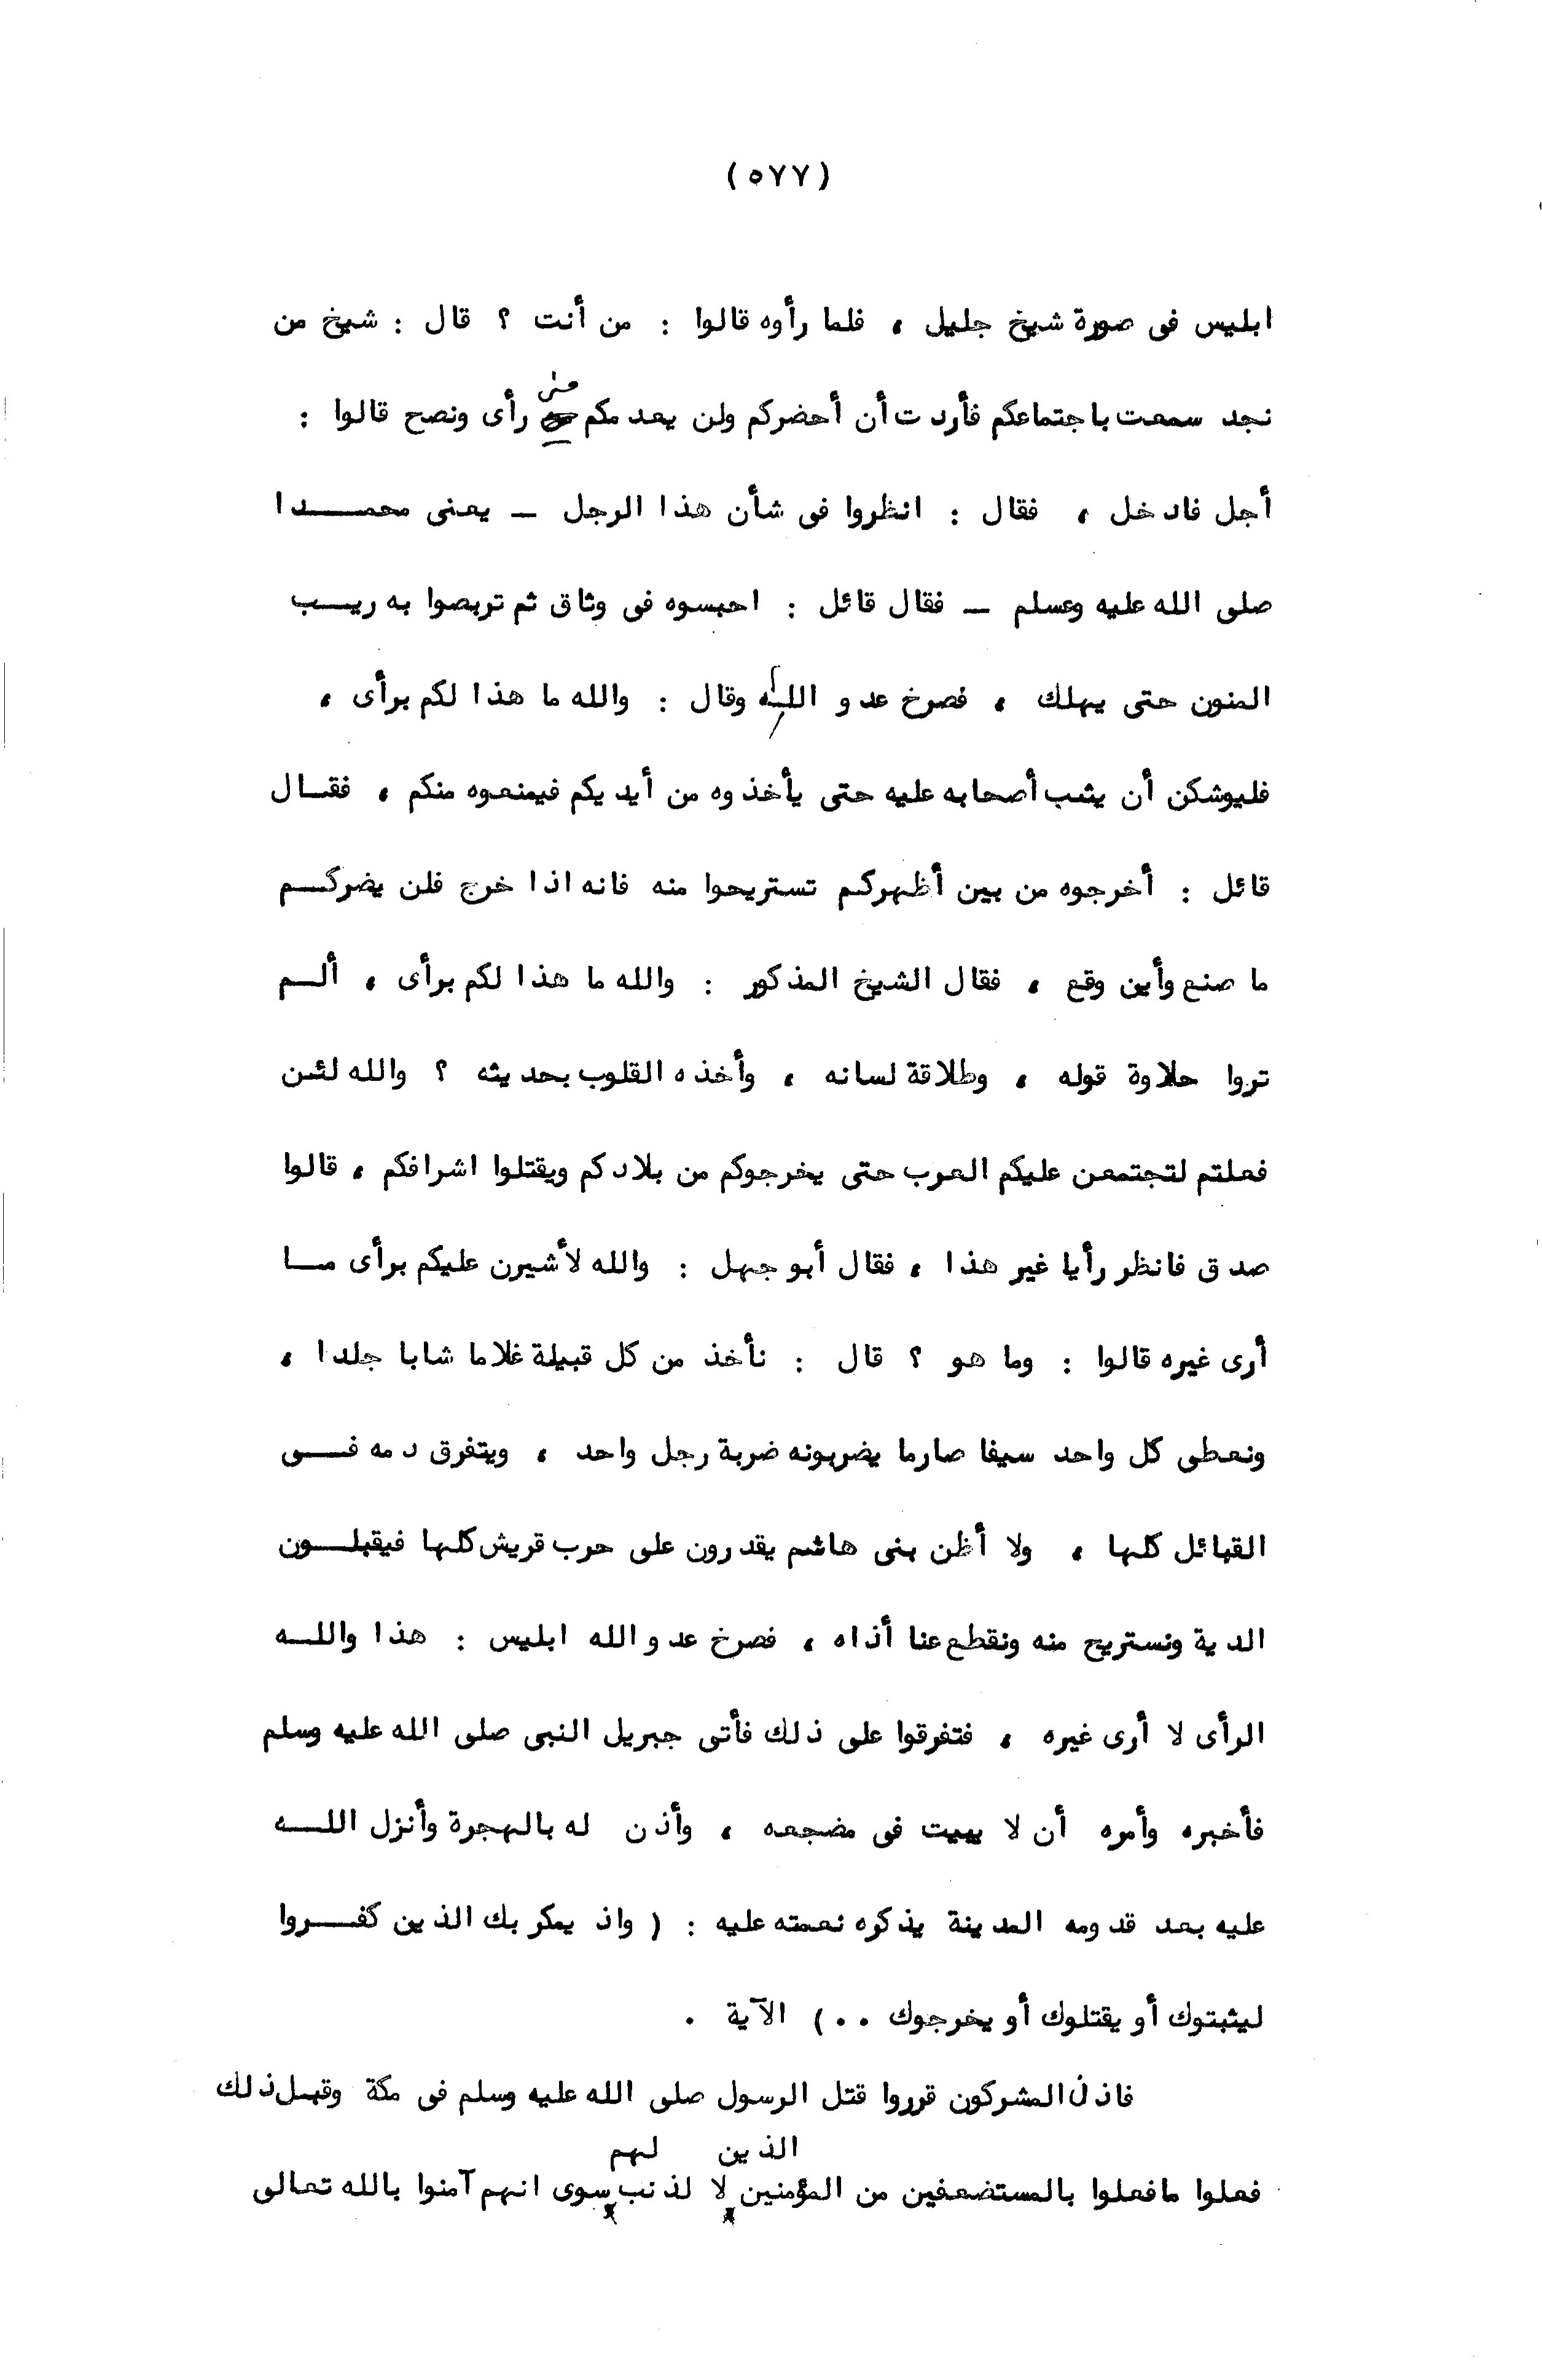 (٥٧٧)
ابليس فى صورة شيخ جليل ، فلما رأوه قالوا : من أنت ؟ قال : شيخ من
منى
نجد سمعت باجتماعكم فأردت أن أحضركم ولن يعدمكم رأى ونصح قالوا :
أجل فادخل ، فقال : انظروا فى شأن هذا الرجل ــ يعنى محمـــدا
صلى الله عليه وسلم ــ فقال قائل : احبسوه فى وثاق ثم تربصوا به ريــب
المنون حتى يهلك ، فصرخ عدو الله وقال : والله ما هذا لكم برأى ،
فليوشكن أن يثب أصحابه عليه حتى يأخذوه من أيديكم فيمنعوه منكم ، فقـال
قائل : أخرجوه من بين أظهركم تستريحوا منه فانه اذا خرج فلن يضركـم
ما صنع وأين وقع ، فقال الشيخ المذكور : والله ما هذا لكم برأى ، ألـم
تروا حلاوة قوله ، وطلاقة لسانه ، وأخذه القلوب بحديثه ؟ والله لئـن
فعلتم لتجتمعن عليكم العرب حتى يخرجوكم من بلادكم ويقتلوا اشرافكم ، قالوا
صدق فانظر رأيا غير هذا ، فقال أبو جهل : والله لأشيرن عليكم برأى مــا
أرى غيره قالوا : وما هو ؟ قال : نأخذ من كل قبيلة غلاما شابا جلدا ،
ونعطى كل واحد سيفا صارما يضربونه ضربة رجل واحد ، ويتفرق دمه فــى
القبائل كلها ، ولا أظن بنى هاشم يقدرون على حرب قريش كلها فيقبلــون
الدية ونستريح منه ونقطع عنا أذاه ، فصرخ عدو الله ابليس : هذا واللــه
الرأى لا أرى غيره ، فتفرقوا على ذلك فأتى جبريل النبى صلى الله عليه وسلم
فأخبره وأمره أن لا يبيت فى مضجعه ، وأذن له بالهجرة وأنزل اللــه
عليه بعد قدومه المدينة يذكره نعمته عليه : ( واذ يمكر بك الذين كفــروا
ليثبتوك أو يقتلوك أو يخرجوك ٠٠) الآية ٠
فاذن المشركون قرروا قتل الرسول صلى الله عليه وسلم فى مكة وقبـل ذلك
الذين لهم
فعلوا مافعلوا بالمستضعفين من المؤمنين لا لذنب سوى انهم آمنوا بالله تعالى